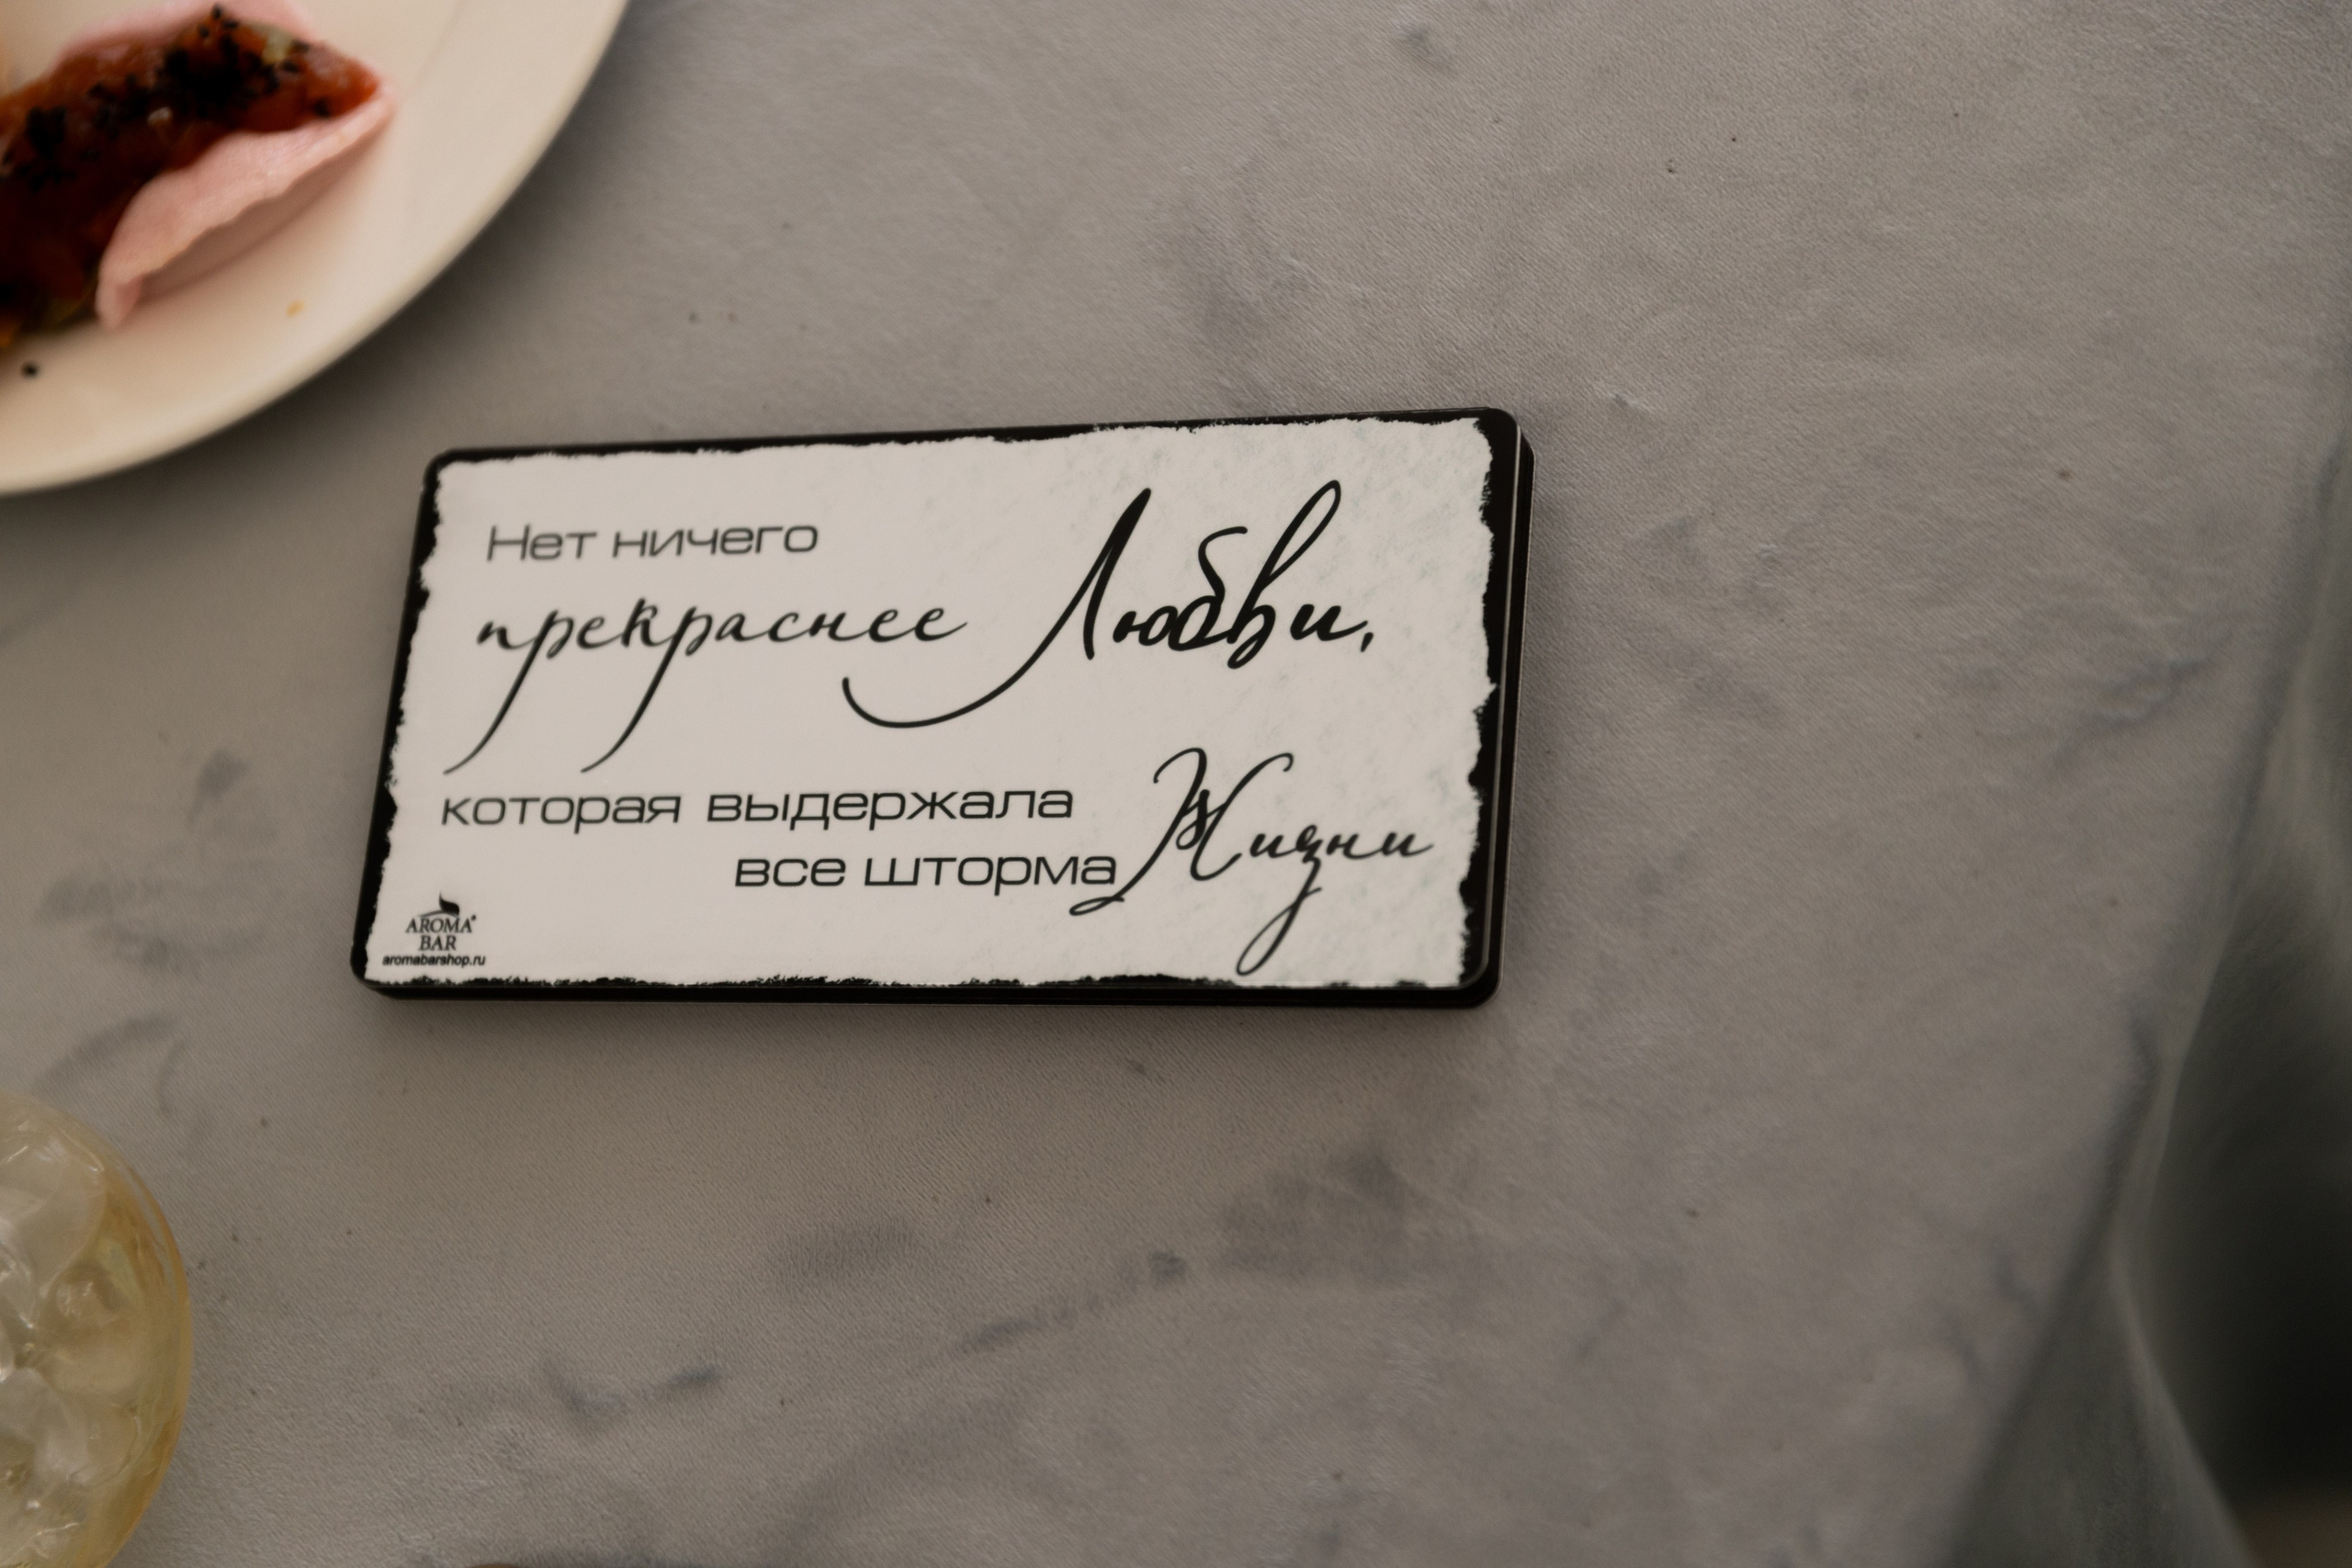 Нет ничего
прекраснее Любви,
которая выдержала
все шторма Жизни
AROMA
BAR
aromabarshop.ru